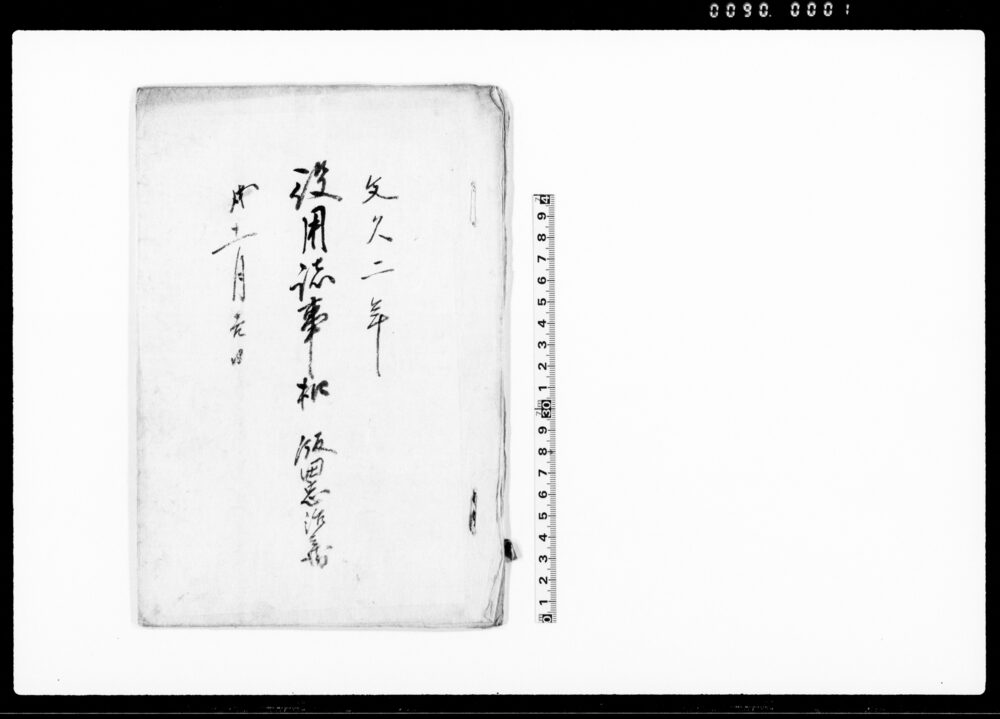 0090. 0001
文久二年
役用誌事扣 飯田
戌十一月吉日
0 1 2 3 4 5 6 7 8 9 30 1 2 3 4 5 6 7 8 9 4